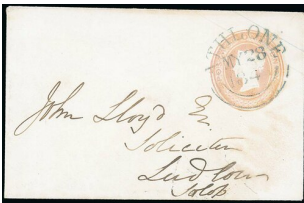 ATHLONE
MY 28
John Lloyd Er
Soliciter
Ludlow
Salop